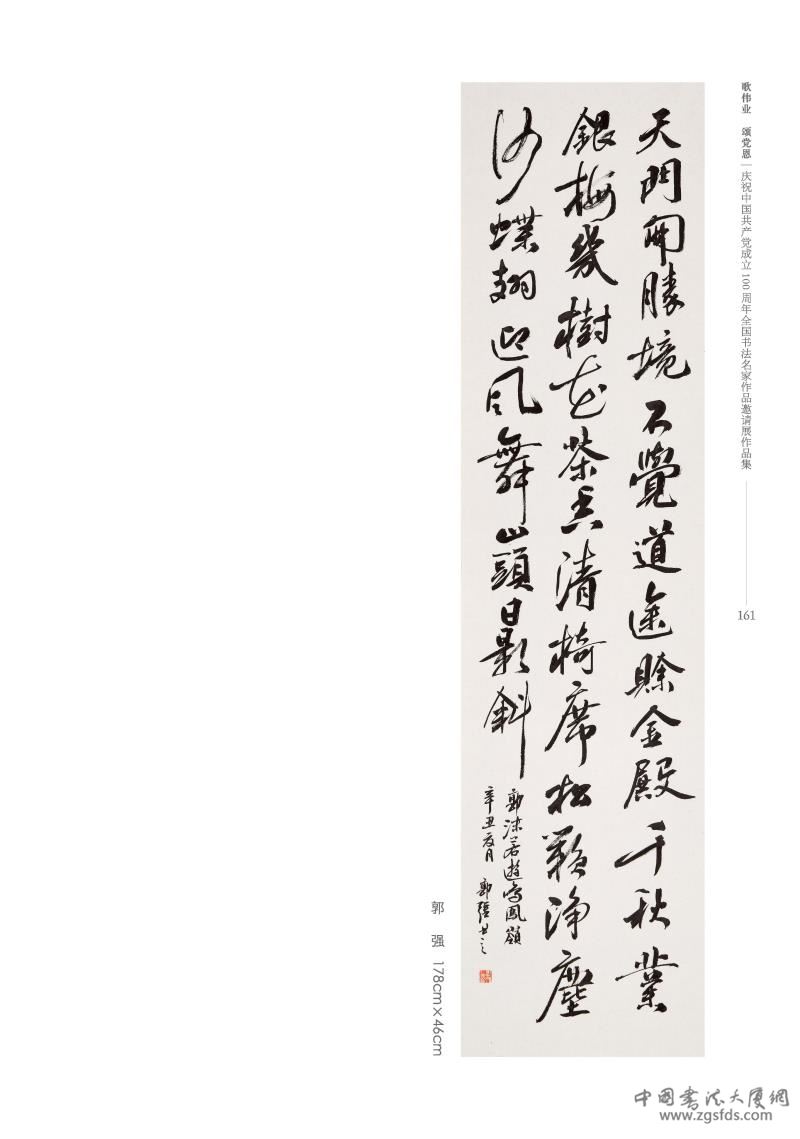 歌伟业 颂党恩|庆祝中国共产党成立100周年全国书法名家作品邀请展作品集
161
天門開勝境不覺道途賒金殿千秋業
銀梅幾樹花茶香清椅席松籟淨塵
沙蝶翅迎风舞山頭日影斜
郭沫若遊鳴鳳嶺
辛丑夏月 郭强书之
郭 强 178cm×46cm
中国書法大厦網
www.zgsfds.com